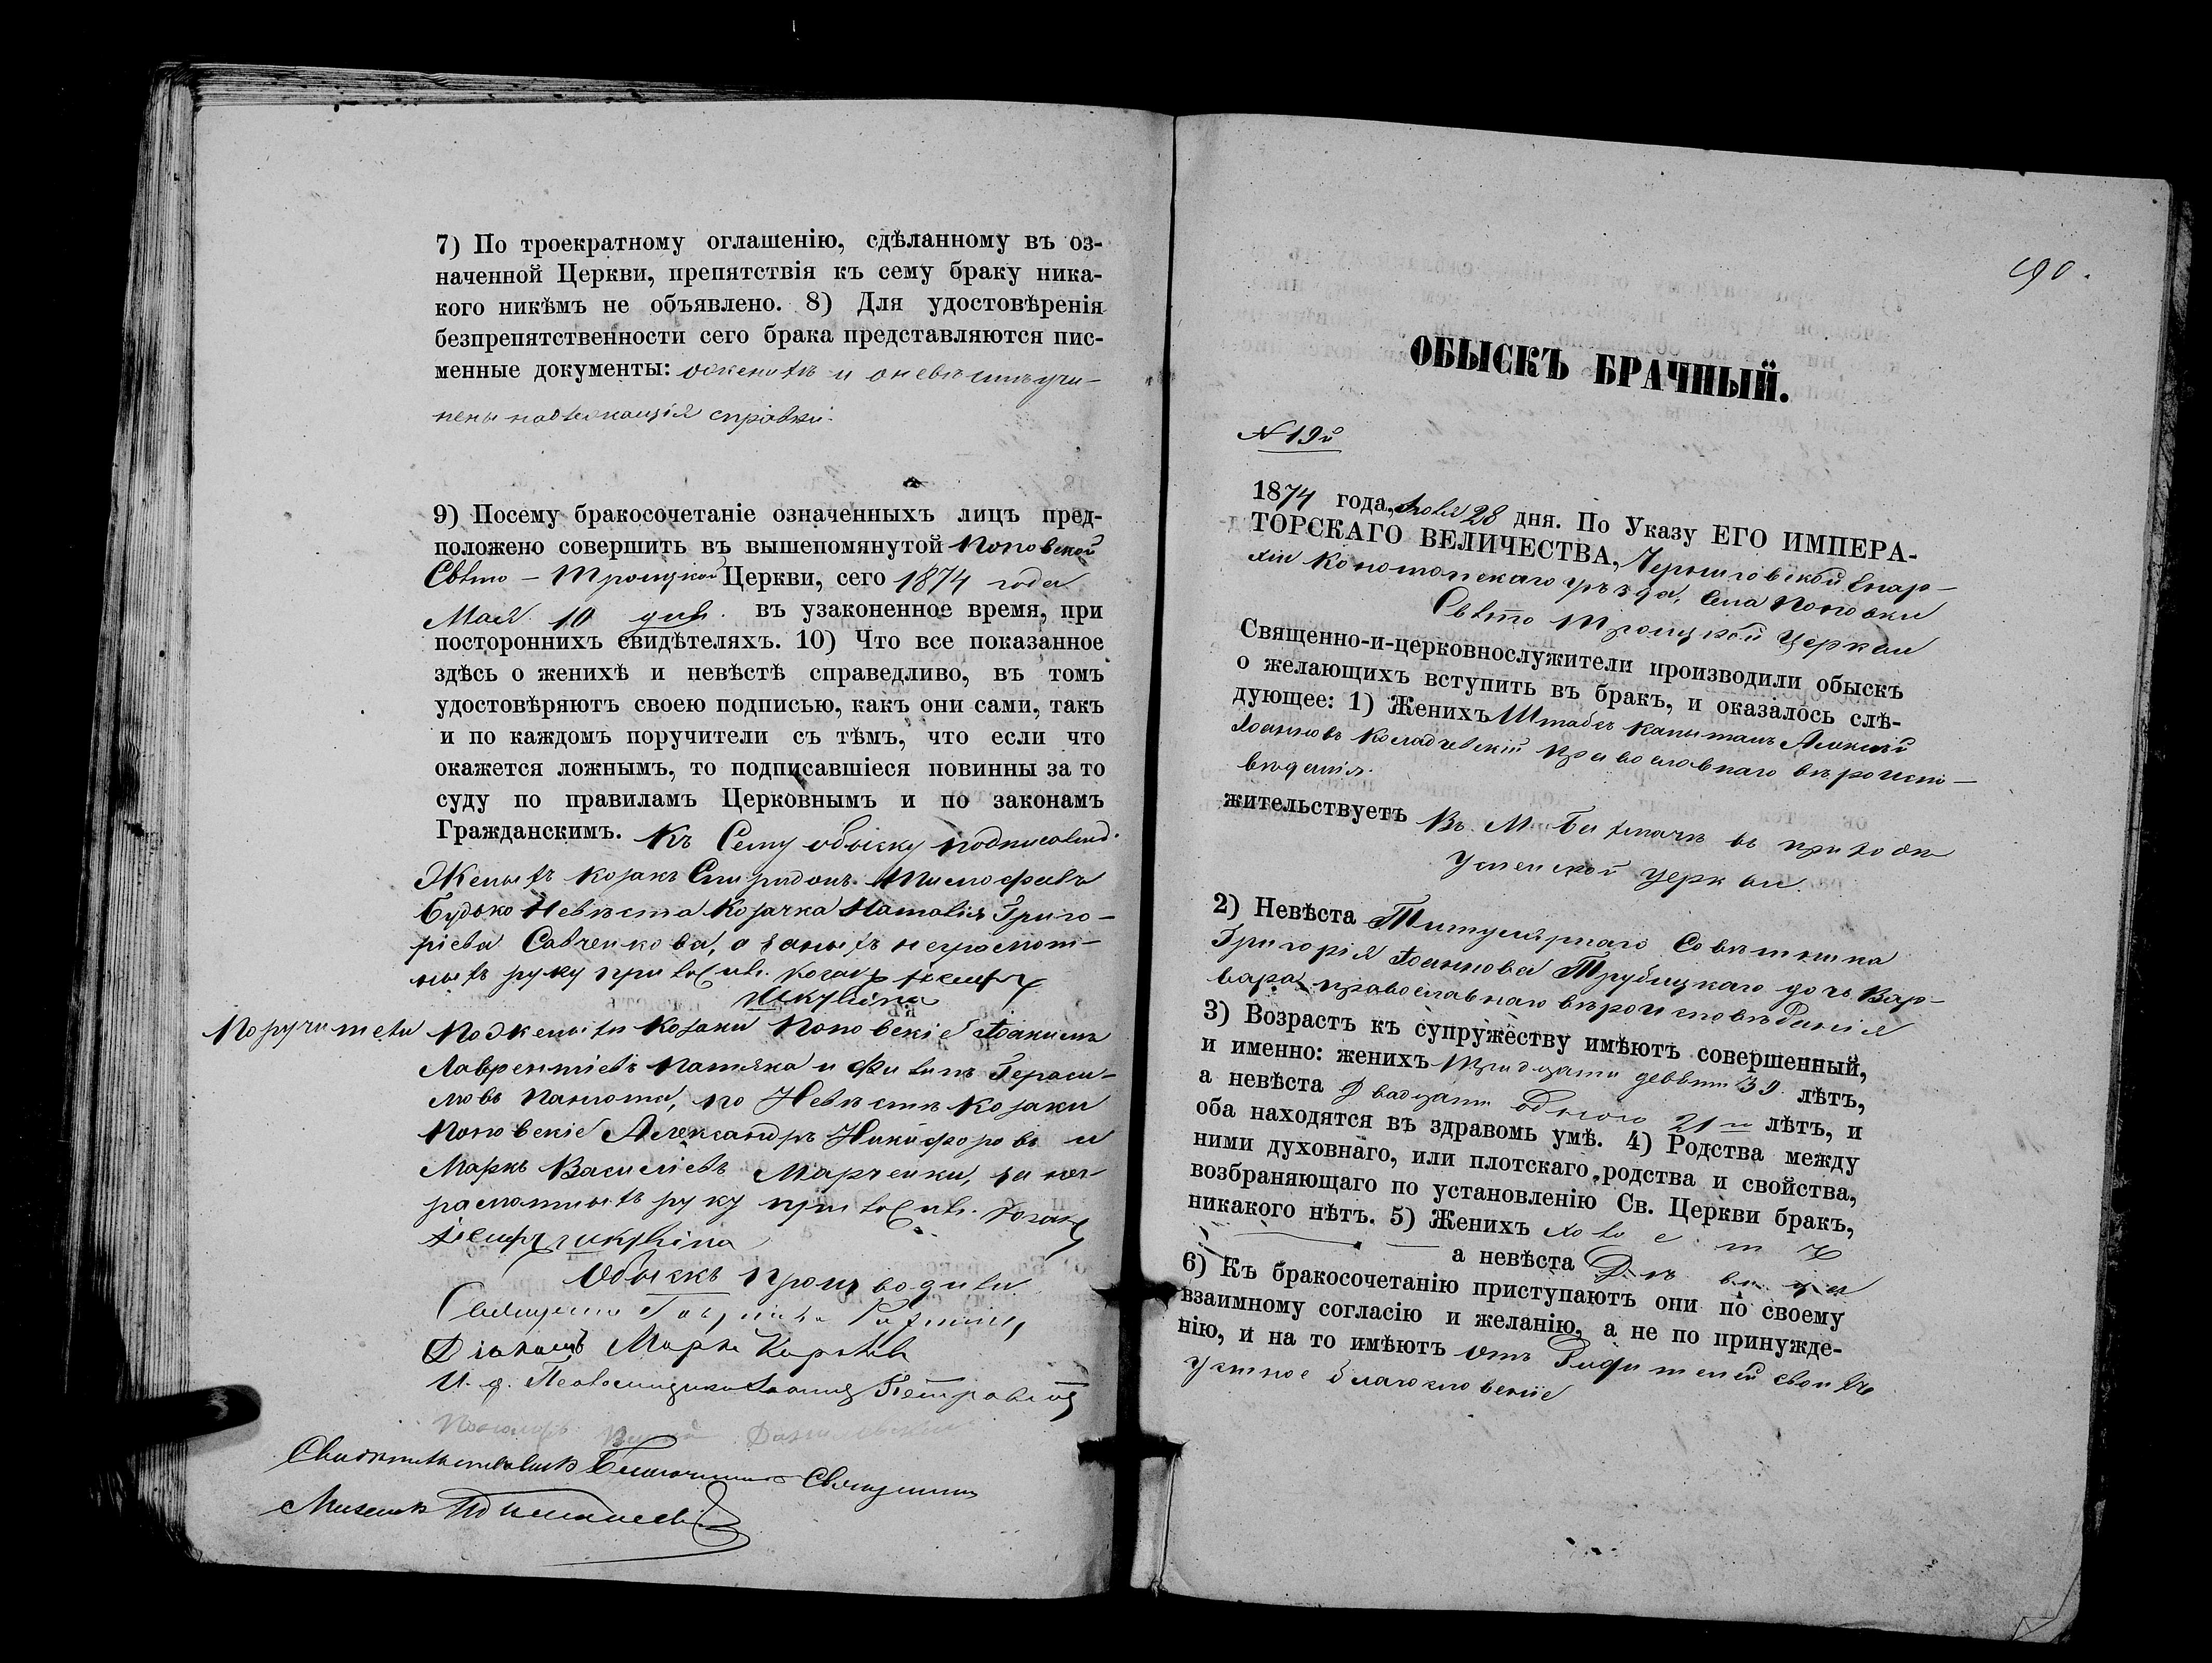 7) По троекратному оглашенію, сдѣланному въ оз-
наченной Церкви, препятствія къ сему браку ника-
кого никѣмъ не объявлено. 8) Для удостовѣренія
безпрепятственности сего брака представляются пис-
менные документы: о женихѣ и о невѣстѣ учи-
нены надлежащія справки.
9) Посему бракосочетаніе означенныхъ лицъ пред-
положено совершить въ вышепомянутой Поповской
Свѣто-Троицкой Церкви, сего 1874 года
Мая 10 дня. въ узаконенное время, при
постороннихъ свидѣтеляхъ. 10) Что все показанное
здѣсь о женихѣ и невѣстѣ справедливо, въ томъ
удостовѣряютъ своею подписью, какъ они сами, такъ
и по каждомъ поручители съ тѣмъ, что если что
окажется ложнымъ, то подписавшіеся повинны за то
суду по правиламъ Церковнымъ и по законамъ
Гражданскимъ. Къ Сему обыску подписались
Женихъ козакъ Спиридонъ Тимофѣевъ
Будько Невѣста Козачка Наталія Григо-
ріева Савченкова, а за нихъ неграмот-
ныхъ руку приложилъ козакъ
Поручители По Женихѣ Козаки Поповскіе Іоакимъ
Лаврентіевъ Патяка и Филипъ Гераси-
мовъ Панюта, по Невѣстѣ Козаки
Поповскіе Александръ Никифоровъ и
Маркъ Василіевъ Марченки, за нег-
рамотныхъ руку приложилъ Козакъ
Обыскъ производили
Діаконъ Марко
И. д. Псаломщика Іоаннъ Петровскій
Благочинный Священникъ
Михаилъ
90.
ОБЫСКЪ БРАЧНЫЙ.
№ 19й
1874 года, Іюля 28 дня. По Указу ЕГО ИМПЕРА-
ТОРСКАГО ВЕЛИЧЕСТВА, Черниговской Епар-
хіи Конотопскаго уѣзда, села Поповки
Свѣто Троицкой Церкви
Священно-и-церковнослужители производили обыскъ
о желающихъ вступить въ бракъ, и оказалось слѣ-
дующее: 1) Женихъ Штабсъ Капитанъ Алексѣй
Іоанновъ православнаго вѣроиспо-
вѣданія.
жительствуетъ Въ М. Батманѣ въ приходѣ
Успенской церкви.
2) Невѣста Титулярнаго Совѣтника
Григорія Іоаннова Трубицкаго дочь Вар-
вара православнаго вѣроисповѣданія
3) Возрастъ къ супружеству имѣютъ совершенный,
и именно: женихъ тридцати девяти 39 лѣтъ,
а невѣста Двадцати одного 21го лѣтъ, и
оба находятся въ здравомъ умѣ. 4) Родства между
ними духовнаго, или плотскаго родства и свойства,
возбраняющаго по установленію Св. Церкви бракъ,
никакого нѣтъ. 5) Женихъ холостъ
а невѣста Дѣвица
6) Къ бракосочетанію приступаютъ они по своему
взаимному согласію и желанію, а не по принужде-
нію, и на то имѣютъ отъ Родителей своихъ
устное благословеніе